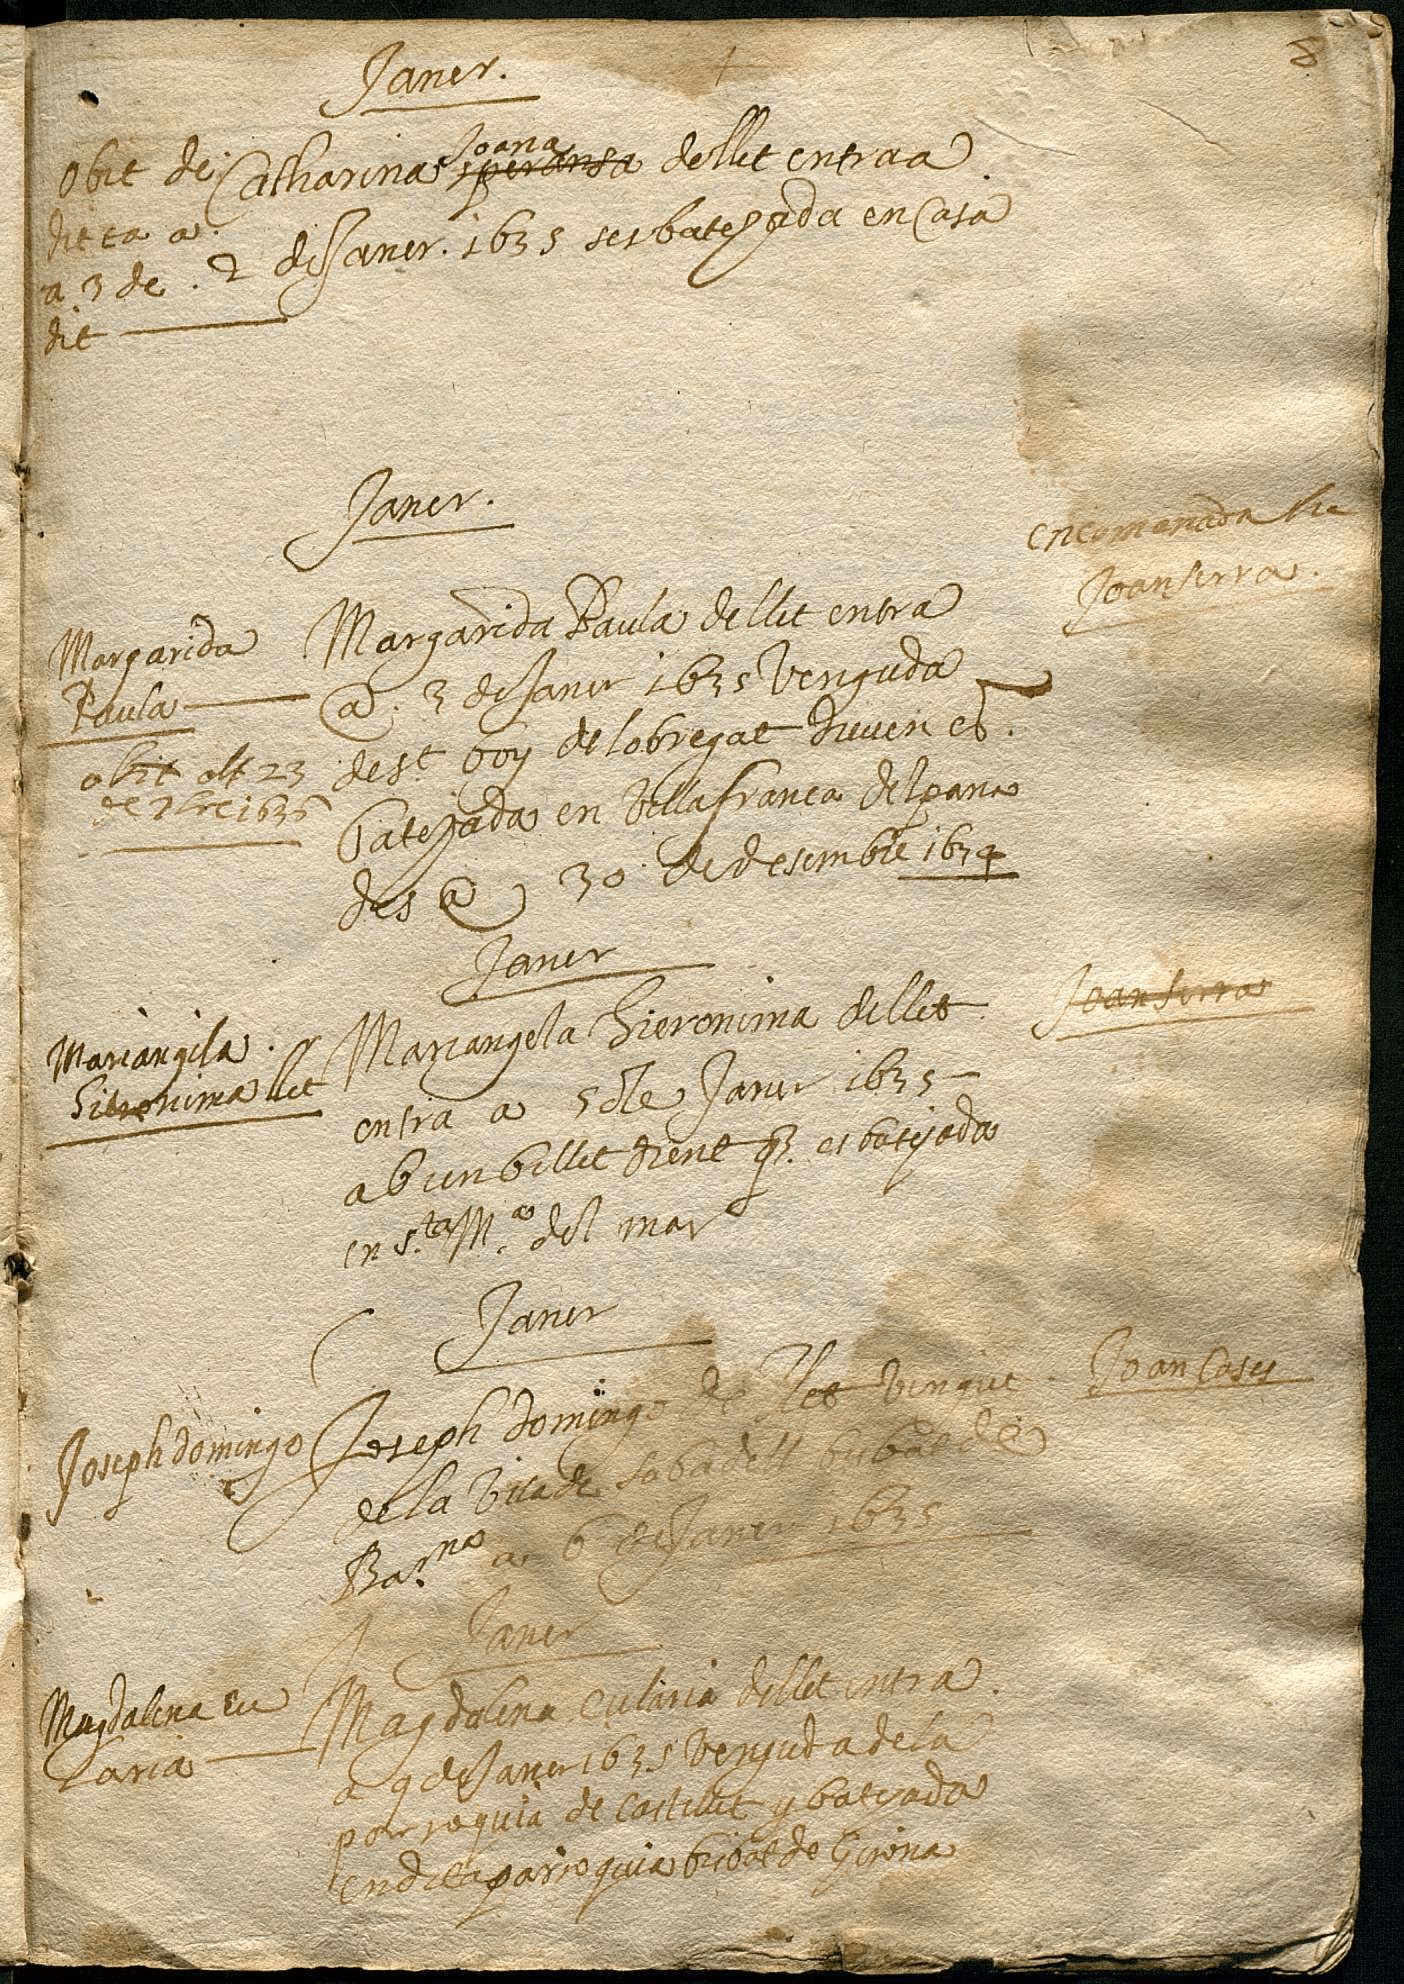 8
Janer.
obit de
ditta a
a 3 de
dit
Joana
Catharina speransa dellet entra a
2 de Janer. 1635 ses batejada en Casa
Janer.
encomanada
Joan serra.
Margarida
Paula
obit als 23
de 7bre 1636
Margarida Paula de llet entra
a. 3 de Janer 1635 Venguda
de st. boy de lobregat diuen es
batejada en Villafranca del pana
des a 30 de desembre 1634
Janer
Joan serra
Mariangela.
Hieronima llet
Mariangela Hieronima de llet
entra a 5 de Janer 1635
ab un billet dient q. es batejada
en s.ta M.a del mar
Janer
Joan Cases
Joseph domingo
Joseph domingo de llet vingue
de la Vila de sabadell bisbat de
Bar.na a 6 de Janer 1635
Janer
Magdalena Eu
laria
Magdalena Eularia de llet entra.
a 9 de Janer 1635 Venguda de la
parroquia de Castellet y batejada
en dita parroquia bisbat de Girona